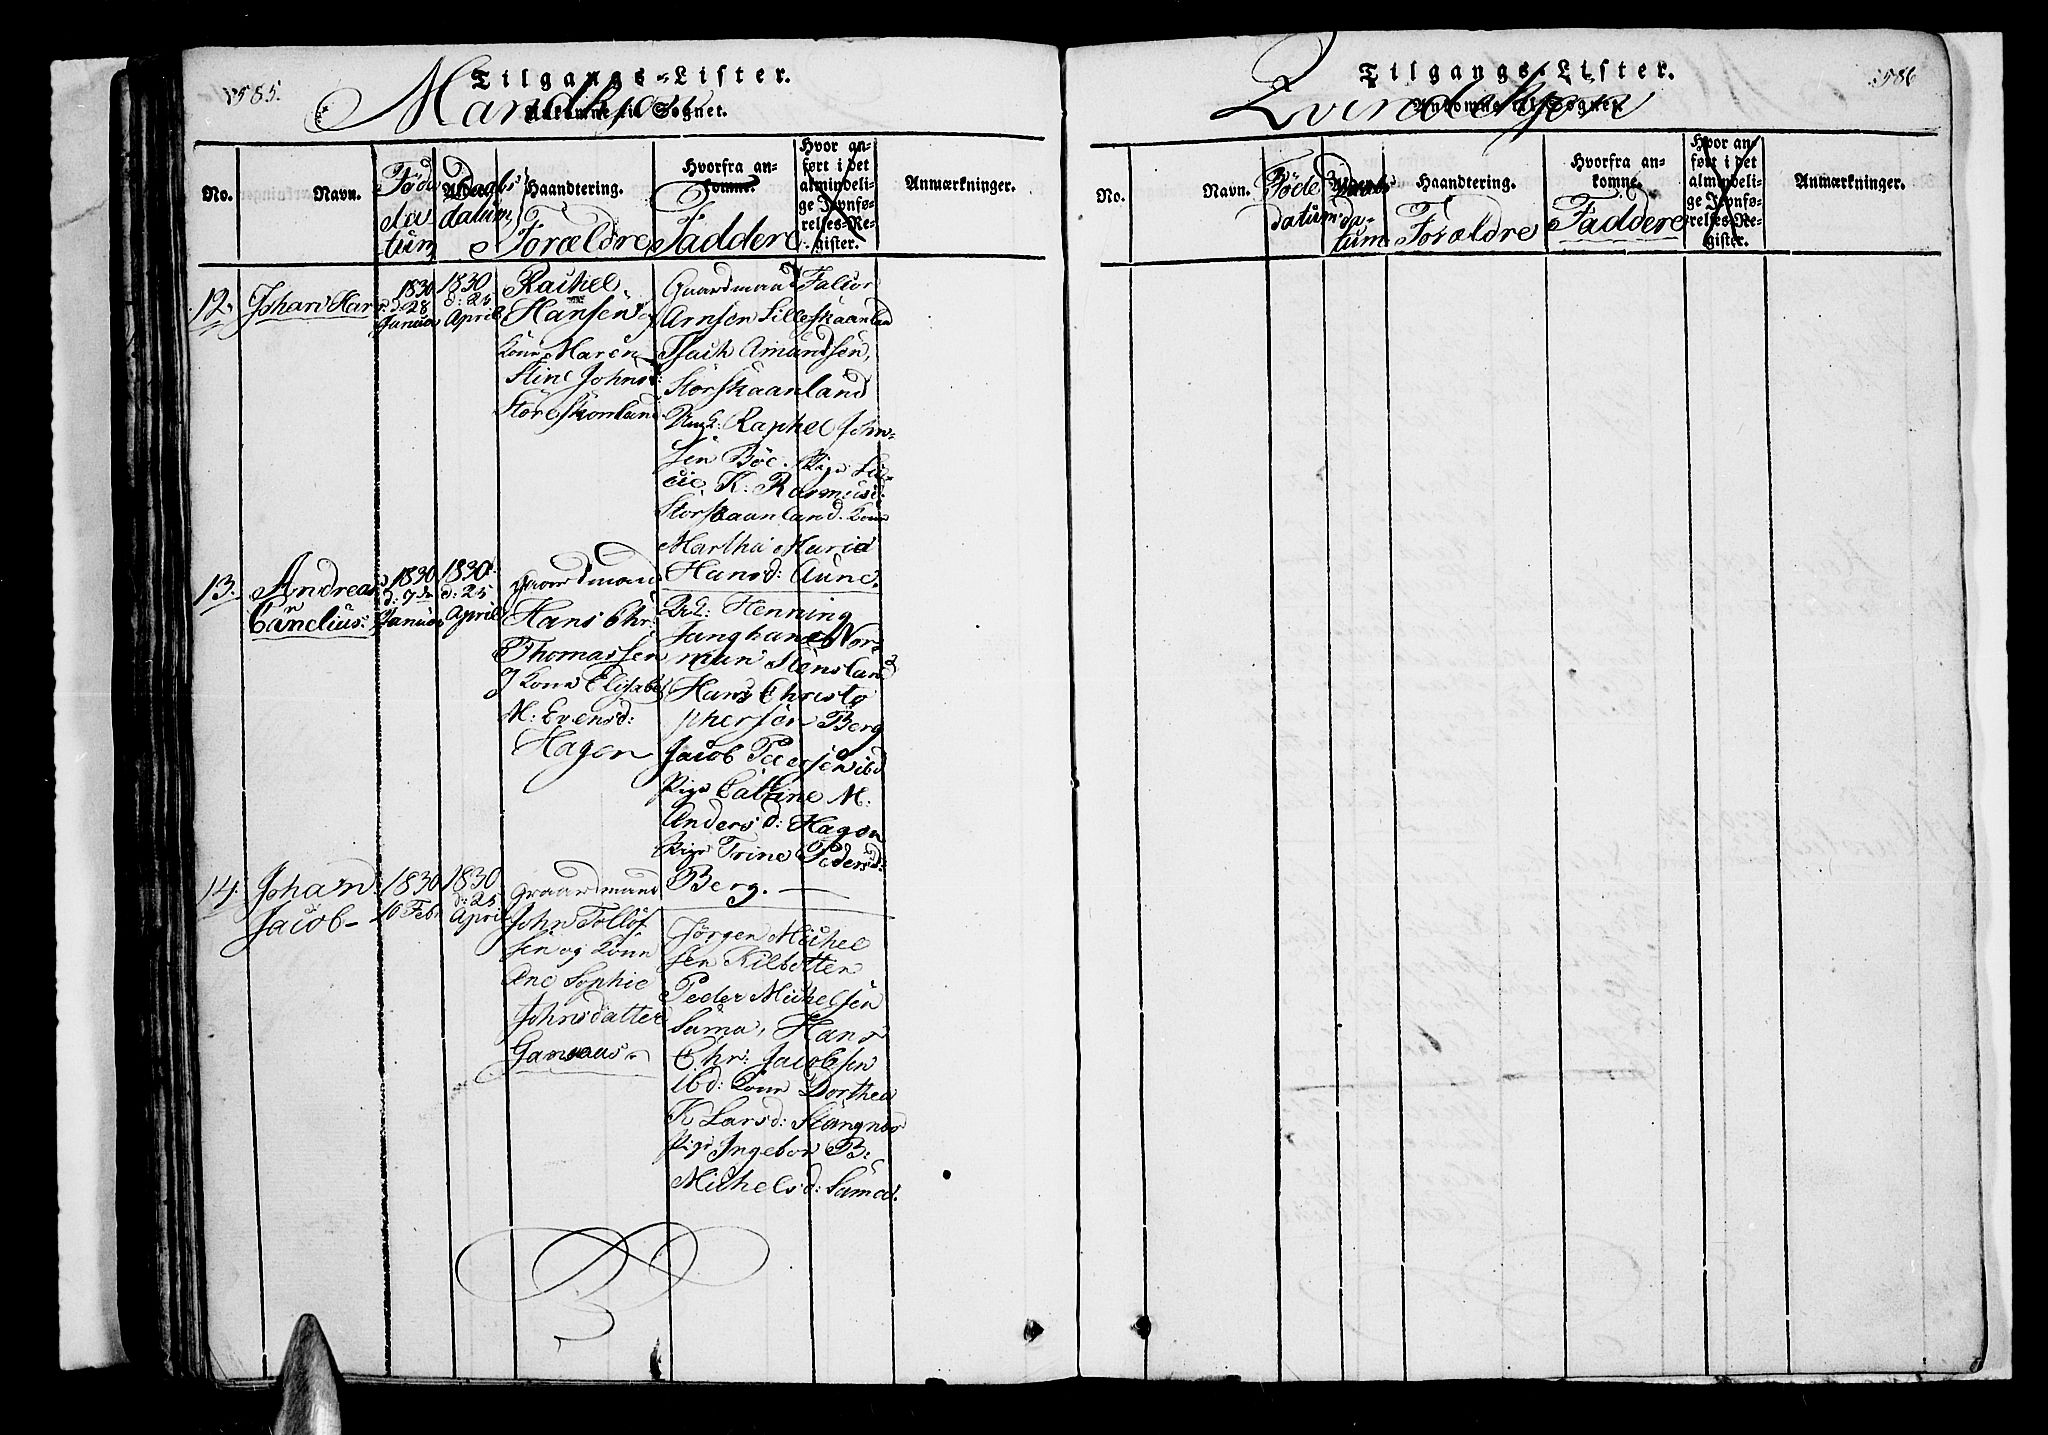 585.
Tilgangs-Lister.
Ankomne til Sognet.
Mandkjön
No.
Navn.
Föde
datum
Daabs
datum
Haandtering.
Forældre
Hvorfra an-
komne.
Faddere
Hvor an-
ført i det
almindeli-
ge Jevnfø-
relses-Re-
gister.
Anmærkninger.
12.
Johan Har
1830
d: 28
Januar
1830
d: 25
April
Rachel
Hansen og
Kone Maren
Stine Johnsd:
Store Skonland
Gaardmand Falior
Arnsen Lilleskaanland
Isach Amundsen,
Storskaanland
Ungk: Raphel John-
sen Böe. Pige Lu-
cie K: Rasmusd:
Storskaanland. Kone
Martha Maria
Hansd: Aune.
13.
Andreas
Cornelius.
1830
d: 7de
Januar
1830
d: 25
April
Gaardmand
Hans Chr:
Thomassen
og Kone Elisabet
M: Evensd:
Hagen
Henning
Junghans Nor-
man Stensland
Hans Christo
phersen Berg
Jacob Pedersen ibd
Pige Catrine M:
Andersd: Hagen
Pige Trine Pedersd:
Berg.
14.
Johan
Jacob
1830
16 Febr
1830
d: 25
April
Graardmand
John Tollöf-
sen og Konn
Ane Sophie
Johnsdatter
Gansaas
Jörgen Michel
sen Kilbotten
Peder Michelsen
Sama, Hans
Chr: Jacobsen
ibd: Kone Dorthea
K Larsd: Stangnes
Pige Ingebor B:
Michelsd: Sama.
586
Tilgangs-Lister.
Ankomne til Sognet.
Qvindekjön
No.
Navn.
Föde
datum
Daabs
da-
tum
Haandtering.
Forældre
Hvorfra an-
komne.
Faddere
Hvor an-
ført i det
almindeli-
ge Jevnfø-
relses-Re-
gister.
Anmærkninger.